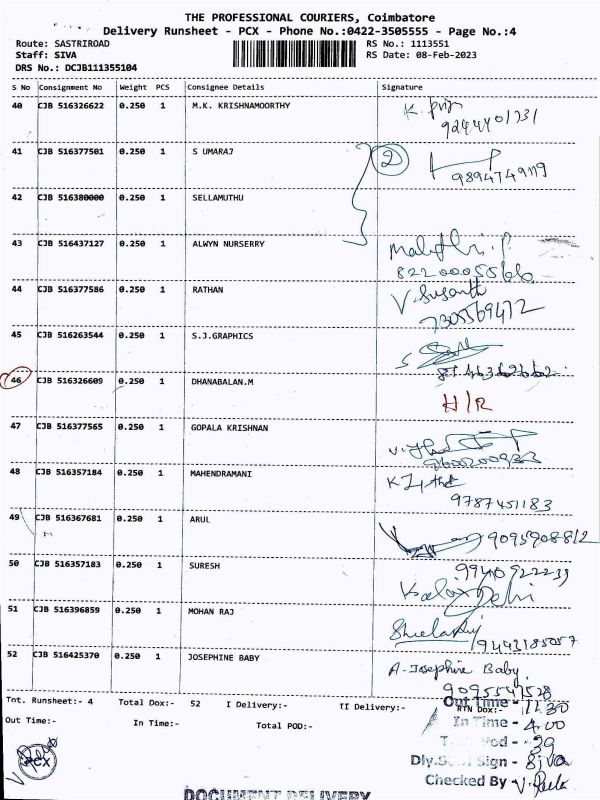 THE PROFESSIONAL COURIERS, Coimbatore
Delivery Runsheet - PCX - Phone No.:0422-3505555 - Page No.:4
Route: SASTRIROAD RS No.: 1113551
Staff: SIVA RS Date: 08-Feb-2023
DRS No.: DCJB111355104
S No Consignment No Weight PCS Consignee Details Signature
40 CJB 516326622 0.250 1 M.K. KRISHNAMOORTHY K.
9244401731
41 CJB 516377501 0.250 1 S UMARAJ 2
9894749119
42 CJB 516380000 0.250 1 SELLAMUTHU
43 CJB 516437127 0.250 1 ALWYN NURSERRY
8220005566
44 CJB 516377586 0.250 1 RATHAN V. Susanth
7305569472
45 CJB 516263544 0.250 1 S.J.GRAPHICS
46 CJB 516326609 0.250 1 DHANABALAN.M
H/R
47 CJB 516377565 0.250 1 GOPALA KRISHNAN
48 CJB 516357184 0.250 1 MAHENDRAMANI
9787451183
49 CJB 516367681 0.250 1 ARUL 9095908812
50 CJB 516357183 0.250 1 SURESH 9940922239
51 CJB 516396859 0.250 1 MOHAN RAJ
9443185057
52 CJB 516425370 0.250 1 JOSEPHINE BABY A. Josephine Baby
Tnt. Runsheet:- 4 Total Dox:- 52 I Delivery:- II Delivery:- RTN Dox:-
Out Time - 11.30
Out Time:- In Time:- Total POD:-
In Time - 4.00
39
PCX
Sign - Siva
Checked By -
DOCUMENT DELIVERY